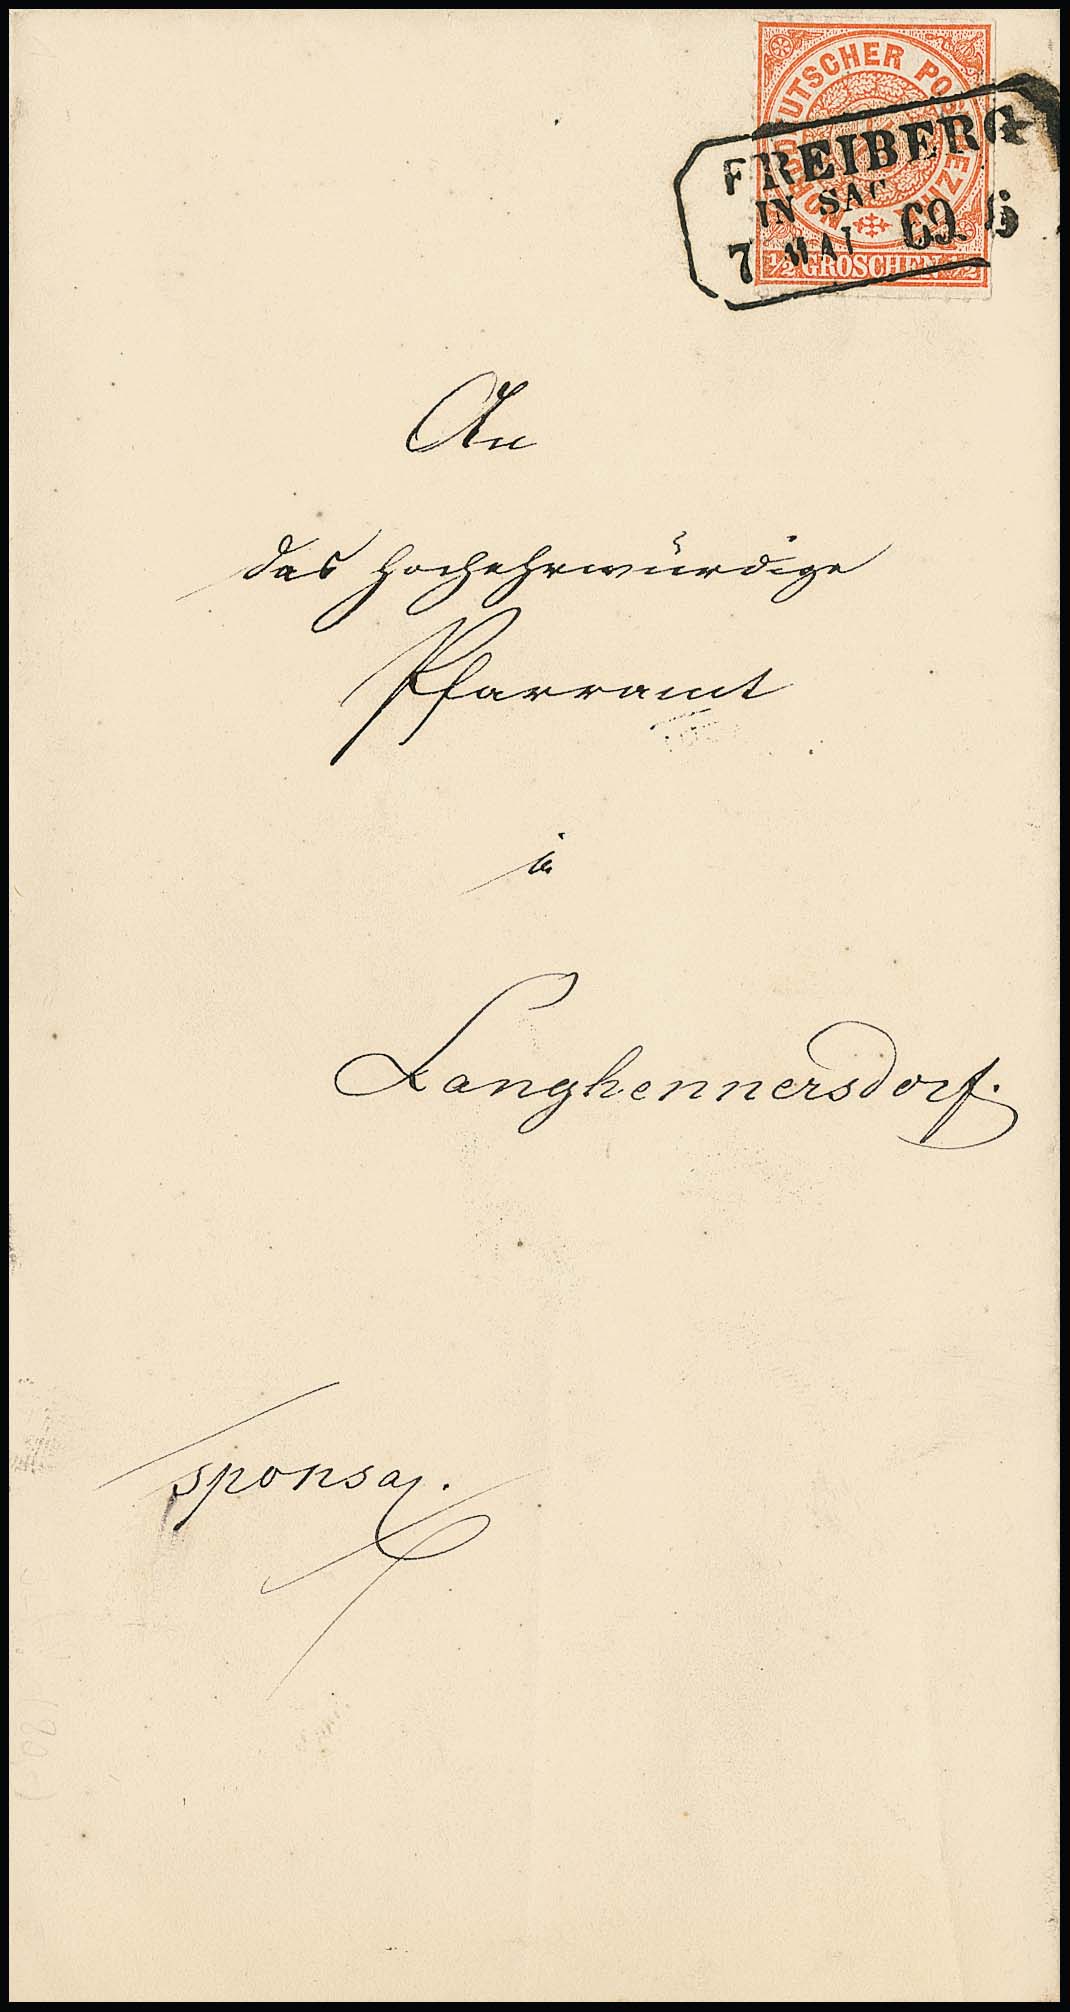 NORDDEUTSCHER POSTBEZIRK
½ GROSCHEN ½
FREIBERG
IN SAC
7 MAI 69. 6
An
das hochehrwürdige
Pfarramt
in
Langhennersdorf.
sponsa.